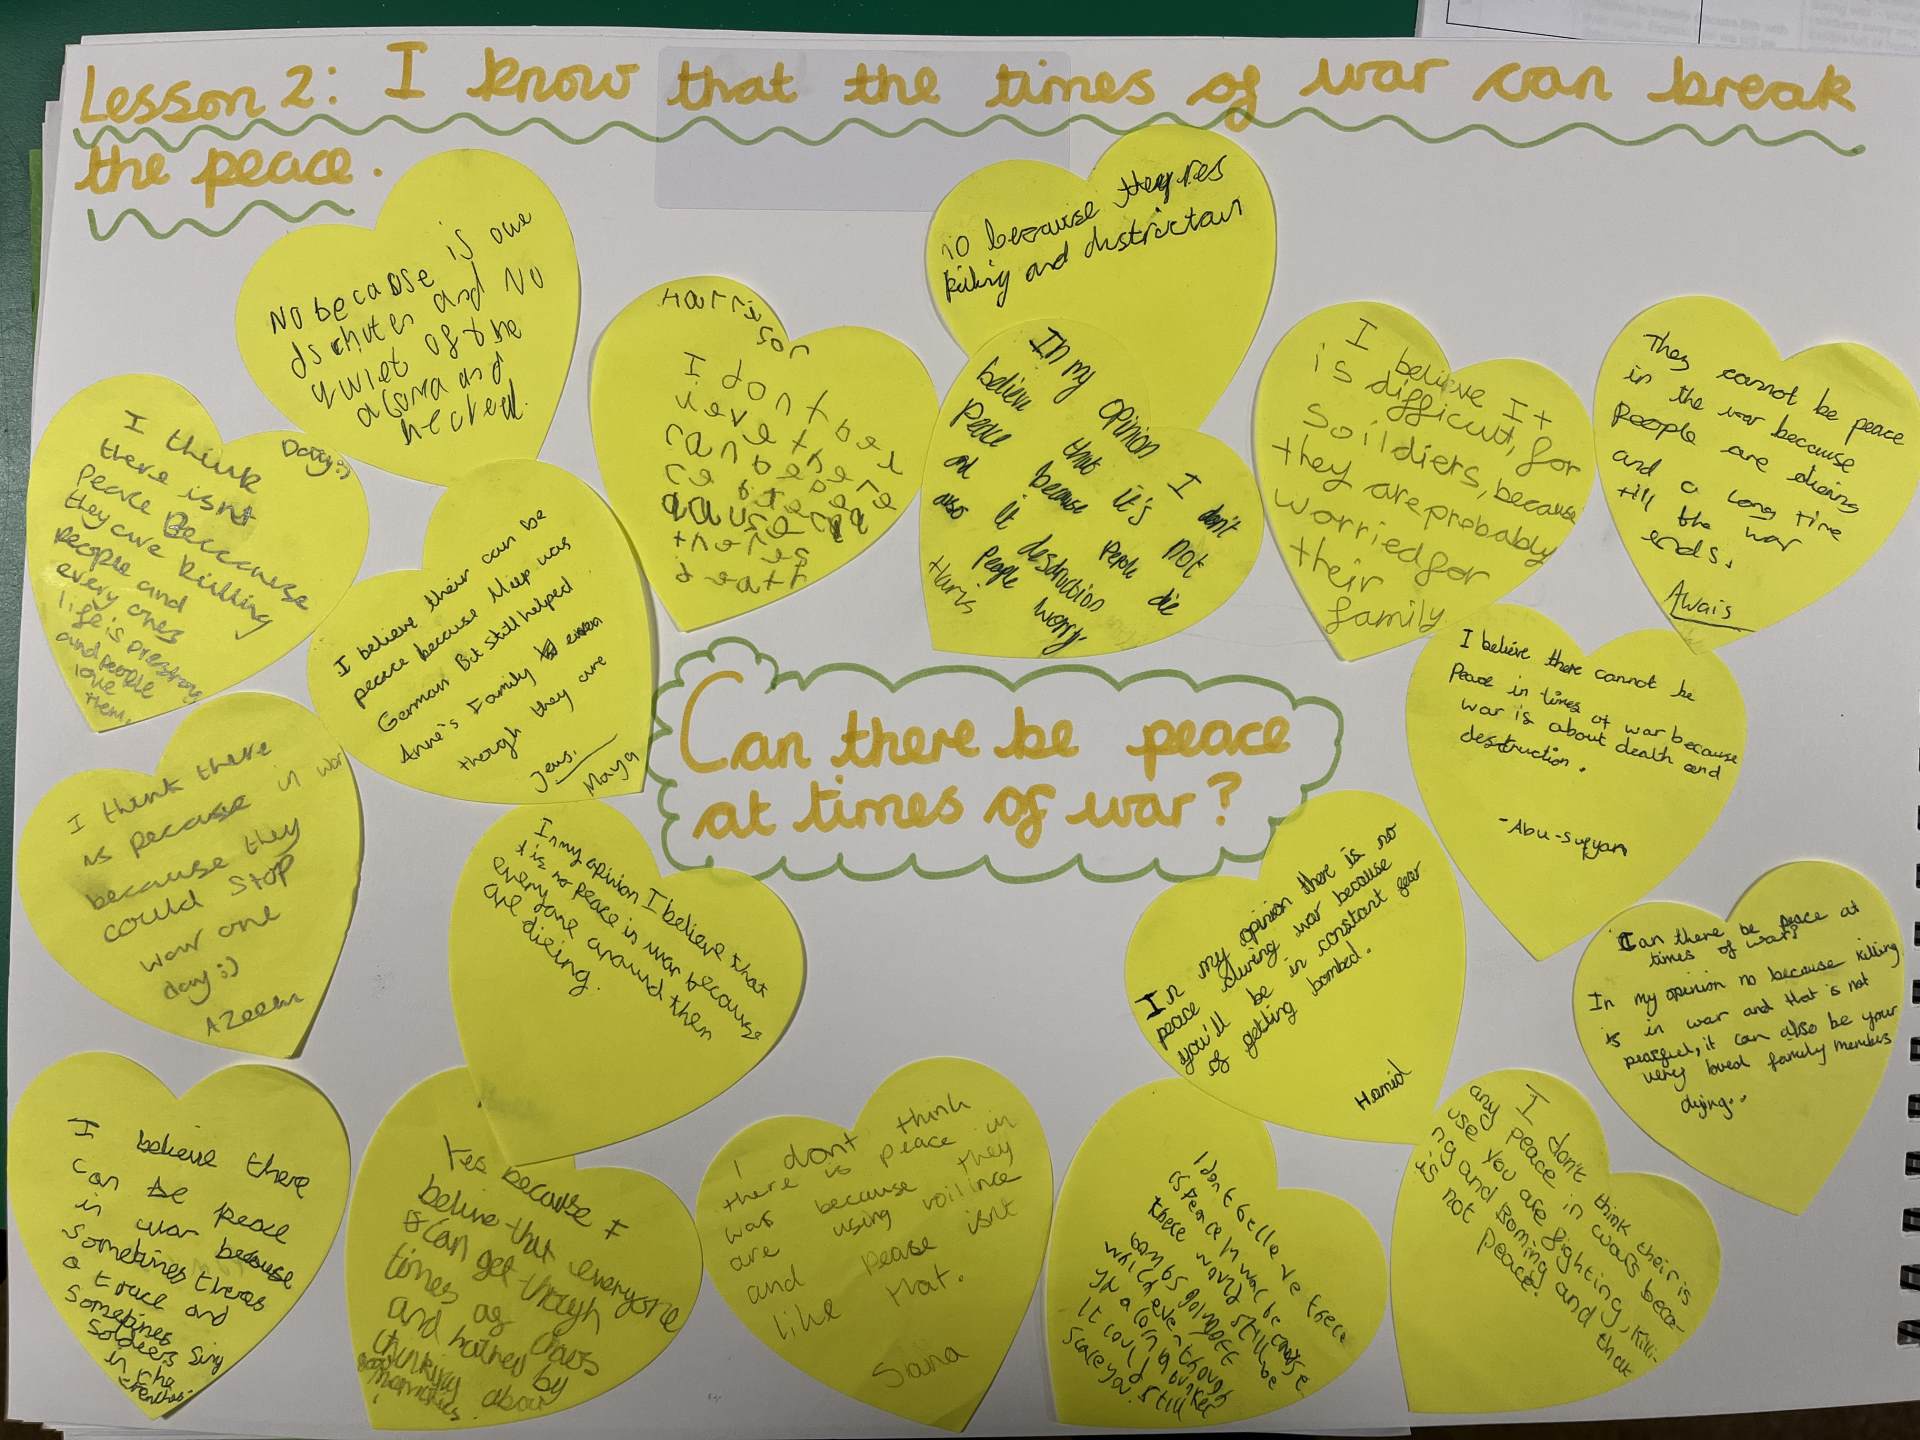 Lesson 2: I know that the times of war can break
the peace.
No because is one
and No
quiet of the
and
I think
there isnt
peace Beccause
they are killing
people and
every ones
life is
and people
love
them.
Dany:)
I believe their can be
peace because Miep was
German But still helped
Anne's Family even
though they are
Jews.
Maya
Harrison
I dont bel
ieve there
can be pea
ce
theres
deatf
io because theyres
killing and distruction
In my opinion I don't
believe that it's not
peace because people die
and It desdruction
also people worry.
Harris
I believe It
is difficult, for
Soildiers, because
they are probably
worried for
their
family
They cannot be peace
in the war because
people are dieing
and a long time
till the war
ends.
Awais
I believe there cannot be
Peace in times of war because
war is about death and
destruction.
-Abu-Sufyan
Can there be peace
at times of war?
I think there
is pecause in war
because they
could stop
war one
day:)
AZeem
In my opinion I believe that
t is no peace in war because
every one around them
are dieing.
In my opinion there is no
peace during war because
you'll be in constant fear
of getting bombed.
Hamid
Can there be peace at
times of war?
In my opinion no because killing
is in war and that is not
peacful, it can also be your
very loved family members
dying..
I believe there
can be peace
in war because
sometimes theras
a truce and
sometimes
soldiers sing
in the
trenches.
Yes because I
belive that everyone
can get though
times as
and hatned by
thinking about
memories.
I dont think
there is peace in
war because they
are using voilince
and pease isnt
like that.
Sana
I dont belleve there
is peace in war because
there would still be
bombs going off
which even though
in a bunker
It could still
scare you.
I don't think their is
any peace in wars beca-
use you are fighting, killi-
ng and Boming and that
is not peace!